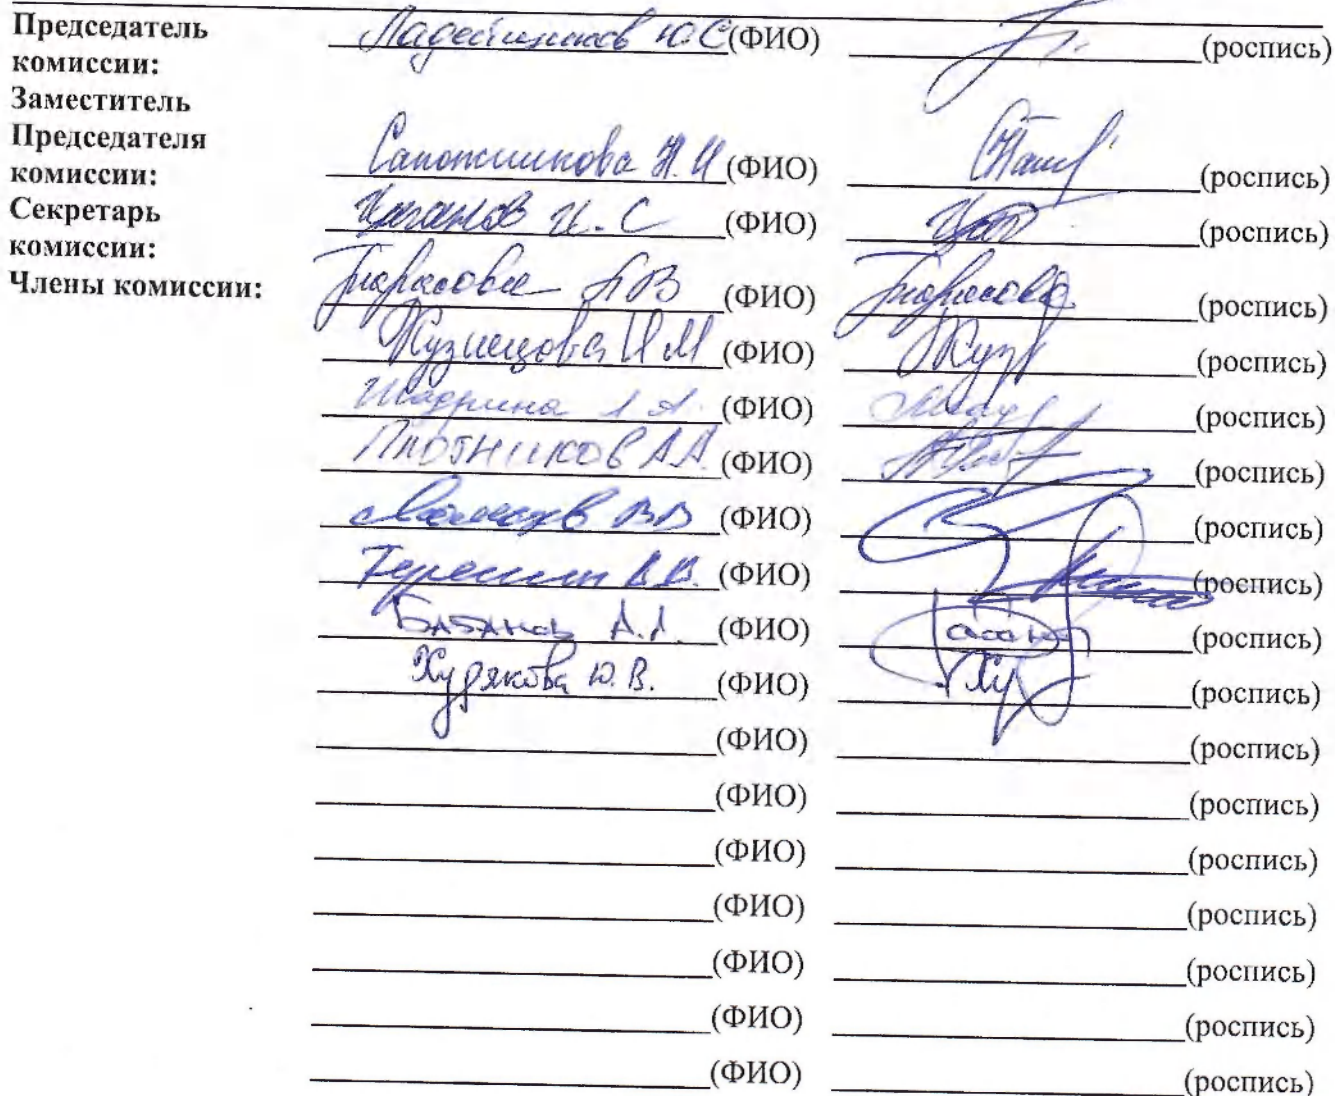 Председатель Ладейщиков Ю.С (ФИО) (роспись)
комиссии:
Заместитель
Председателя
комиссии: Сапожникова Н.И (ФИО) (роспись)
Секретарь Цыганов И.С (ФИО) (роспись)
комиссии:
Члены комиссии: Тарасова ЛВ (ФИО) Тарасова (роспись)
Кузнецова И М (ФИО) Куз (роспись)
Шадрина Л А. (ФИО) (роспись)
Плотников А А. (ФИО) (роспись)
ВВ (ФИО) (роспись)
Терешин В.В. (ФИО) (роспись)
Бабанов А.А. (ФИО) (роспись)
Худякова Ю.В. (ФИО) Ху (роспись)
(ФИО) (роспись)
(ФИО) (роспись)
(ФИО) (роспись)
(ФИО) (роспись)
(ФИО) (роспись)
(ФИО) (роспись)
(ФИО) (роспись)